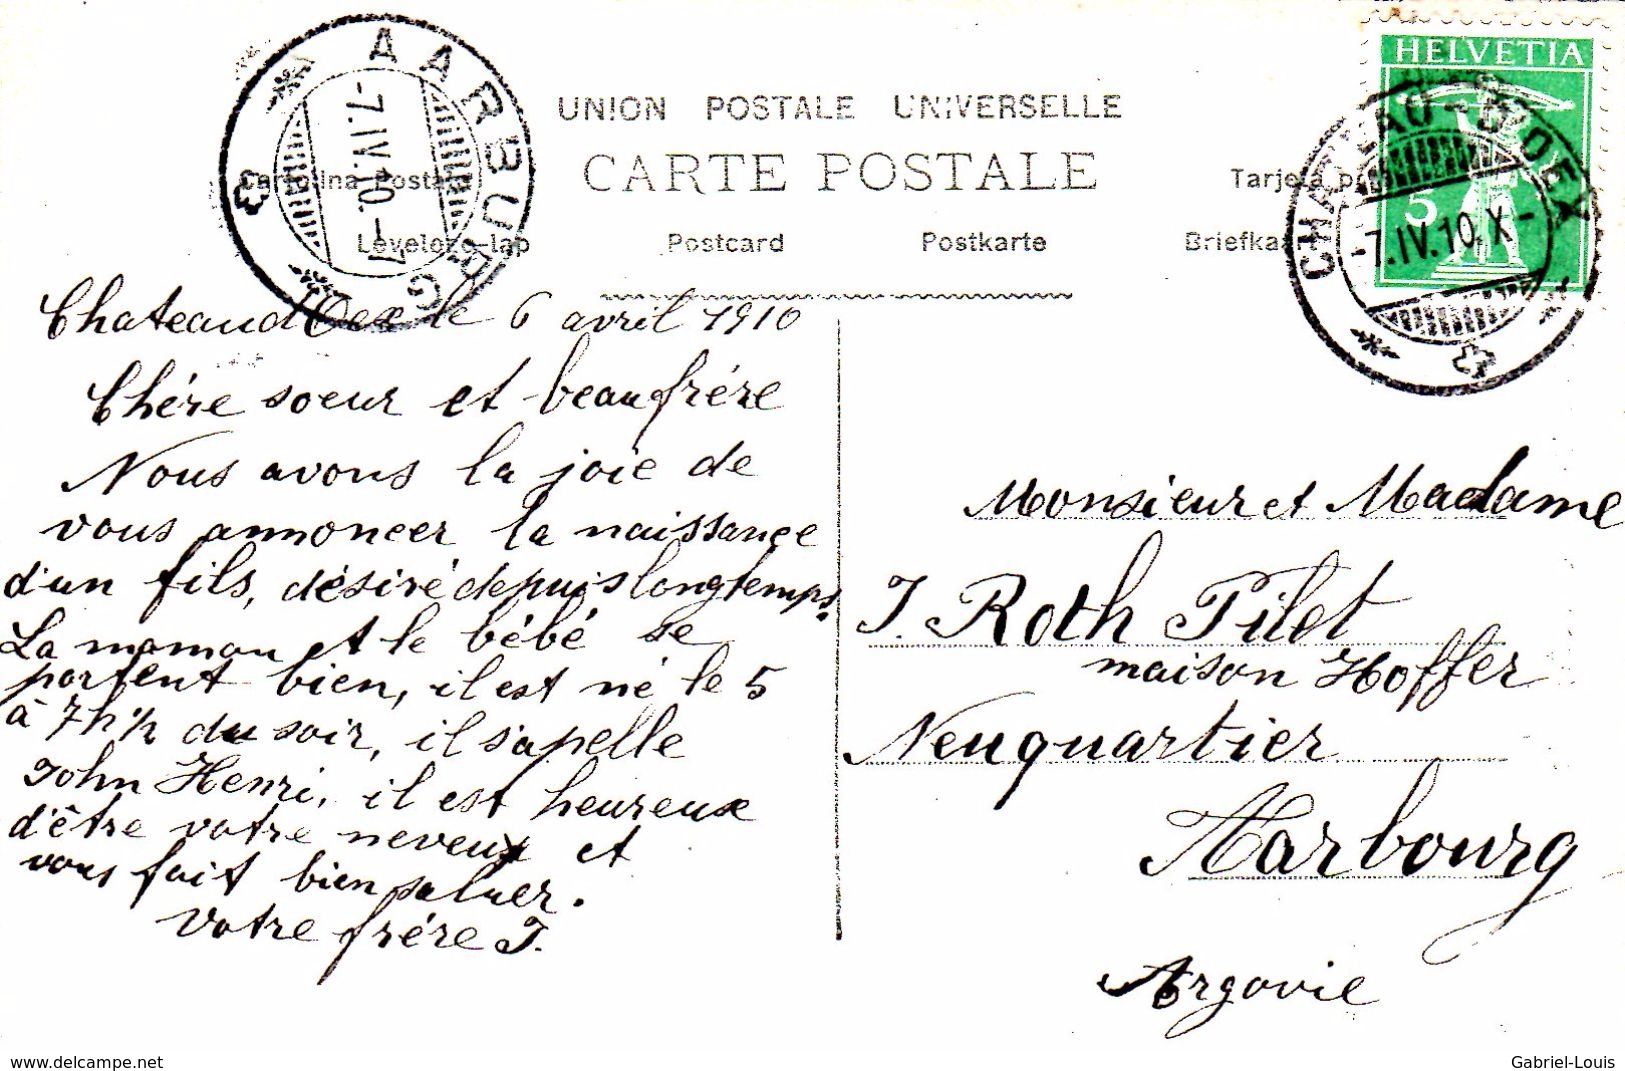 UNION POSTALE UNIVERSELLE
CARTE POSTALE
Cartolina Postale
Tarjeta p
Levelozo-lap
Postcard
Postkarte
Briefkaart
AARBURG
-7.IV.10.-7
HELVETIA
5
CHATEAU-D'OEX
-7.IV.10.X-
Chateaud'Oex le 6 avril 1910
Chére soeur et beaufrére
Nous avons la joie de
vous annoncer la naissance
d'un fils, désiré depuis longtemps.
La maman et le bébé se
portent bien, il est né le 5
à 7h ½ du soir, il s'apelle
John Henri, il est heureux
d'être votre neveux et
vous fait bien saluer.
Votre frére J.
Monsieur et Madame
J. Roth Pilet
maison Hoffer
Neuquartier
Aarbourg
Argovie
www.delcampe.net
Gabriel-Louis